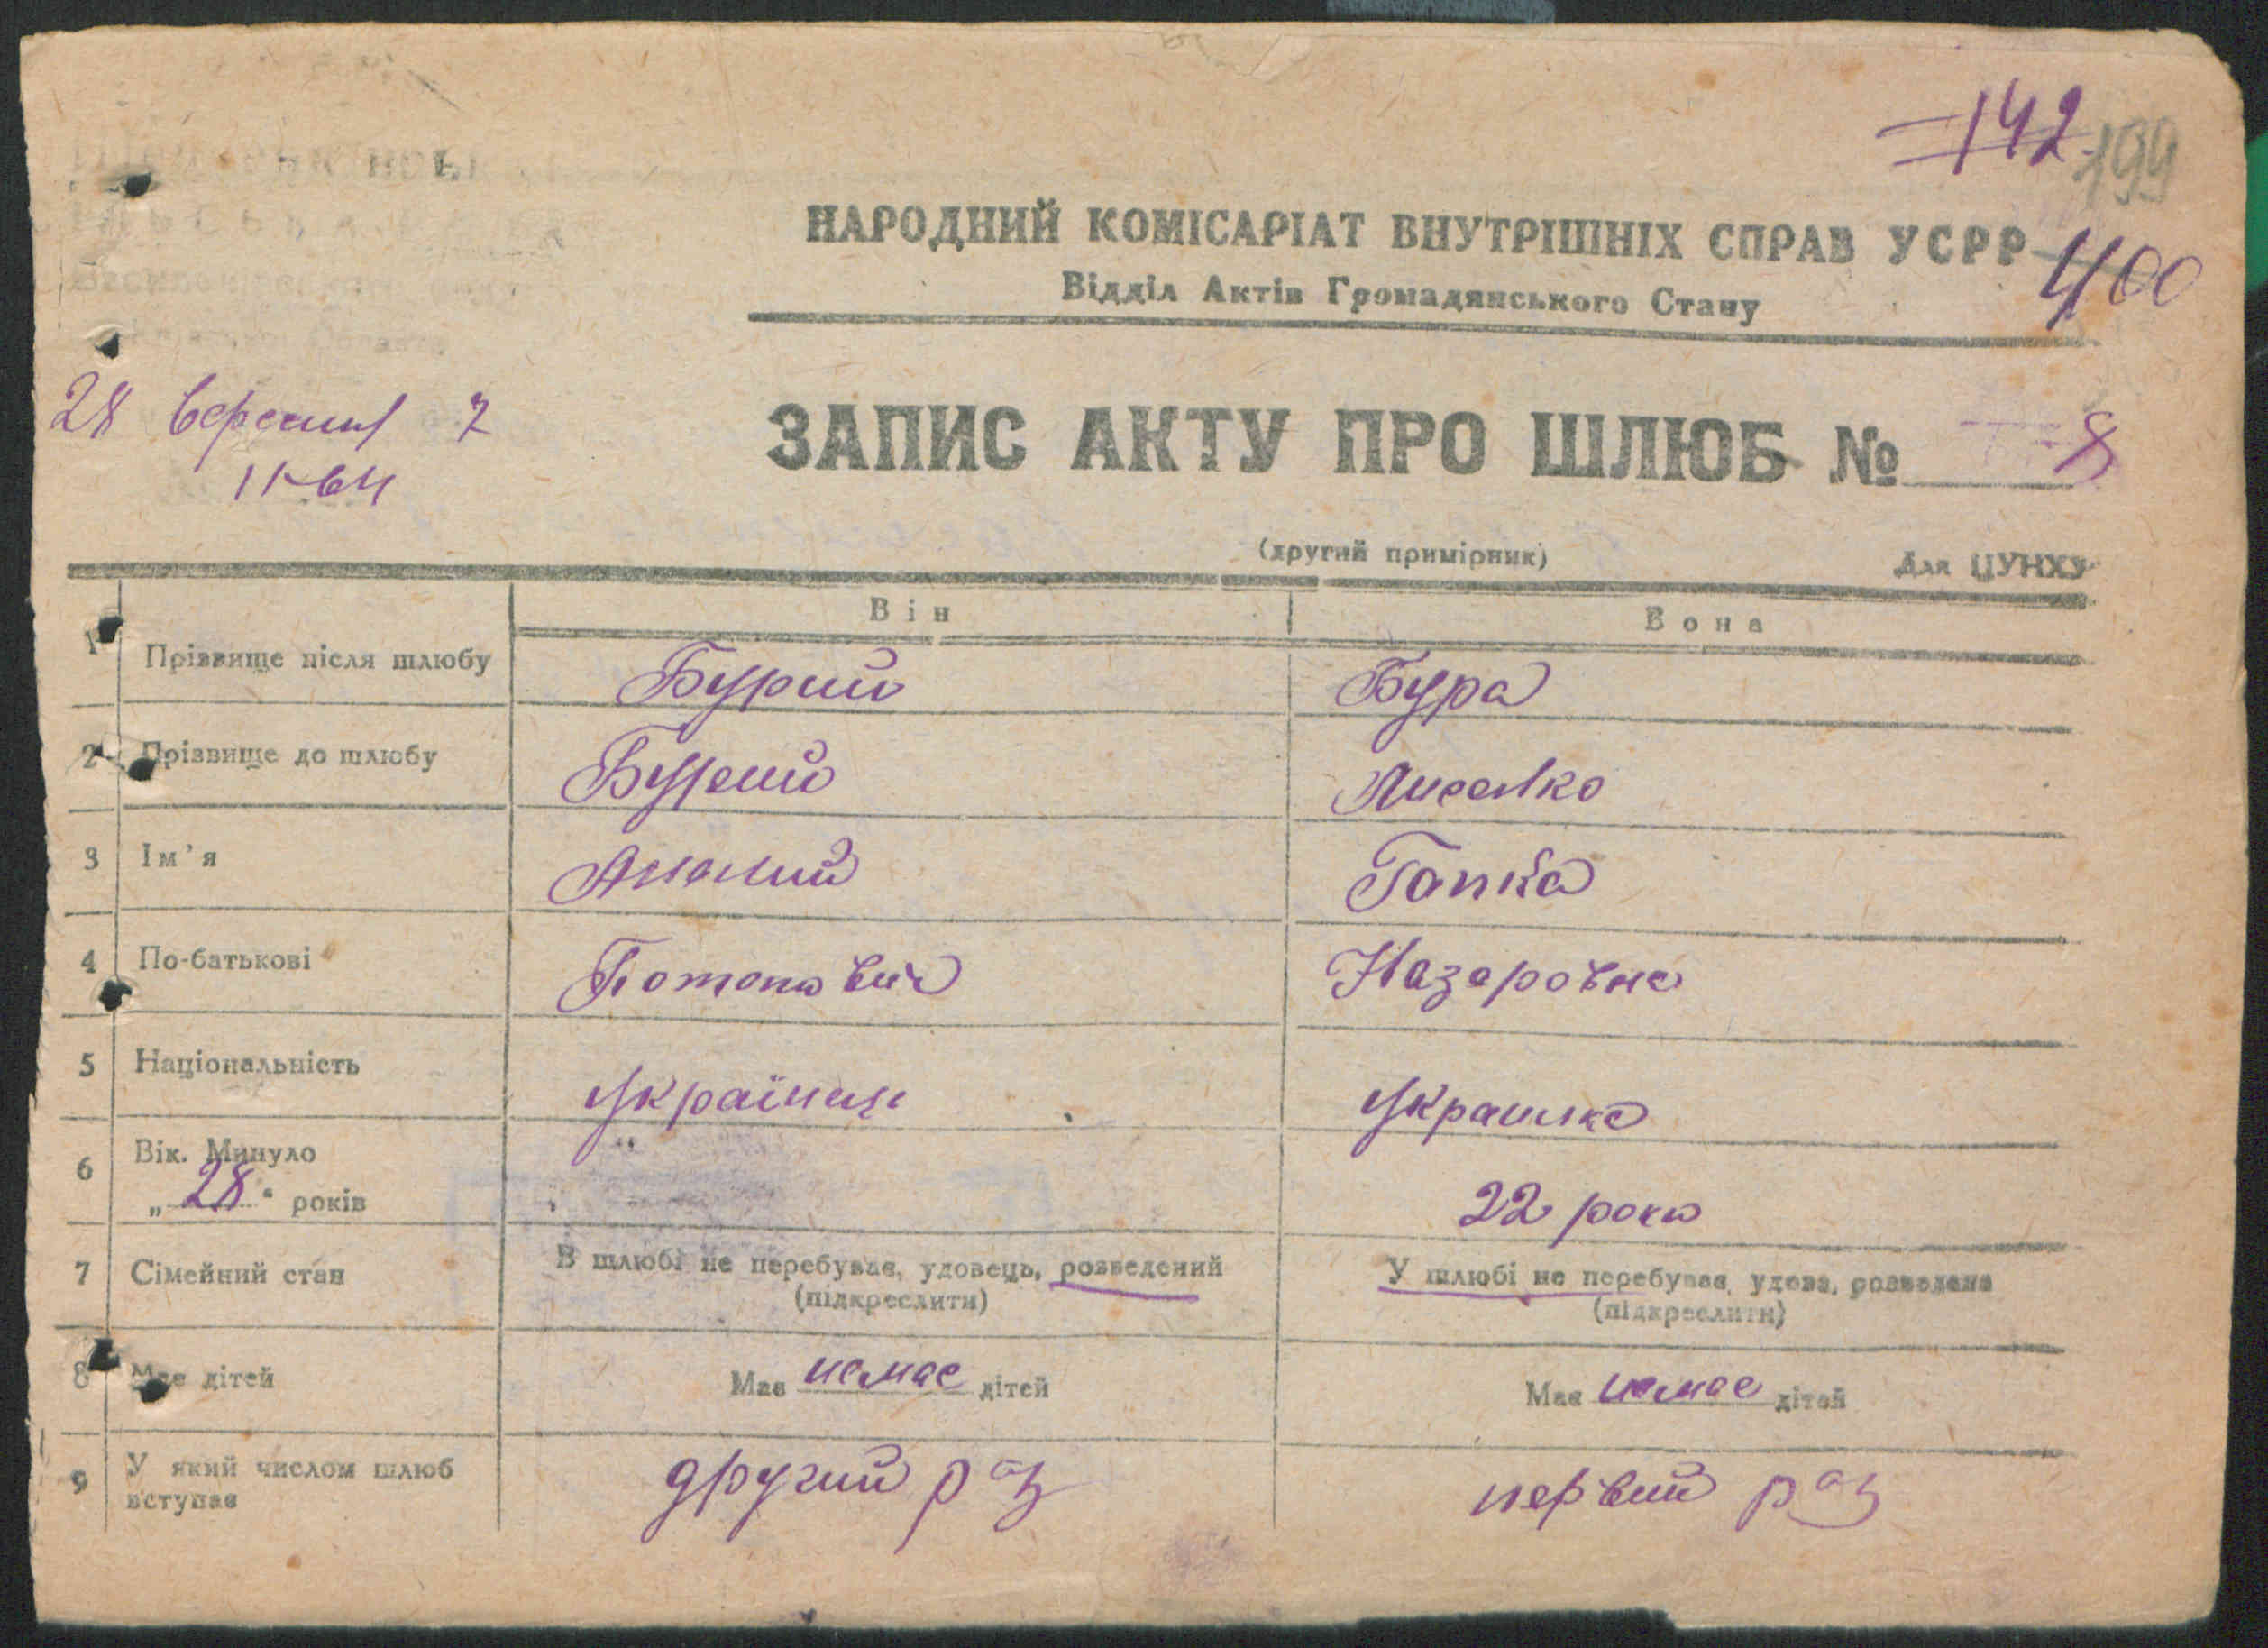 142
199
НАРОДНИЙ КОМІСАРІАТ ВНУТРІШНІХ СПРАВ УСРР
400
Відділ Актів Громадянського Стану
28 вересня 7
ЗАПИС АКТУ ПРО ШЛЮБ № 8
(другий примірник) Для ЦУНХУ
Він Вона
1 Прізвище після шлюбу Бурий Бура
2 Прізвище до шлюбу Бурий Лисенко
3 Ім'я Ананий Гапка
4 По-батькові Потапович Назаровна
5 Національність Українец Украинка
6 Вік. Минуло
„ 28 " років 22 роки
7 Сімейний стан В шлюбі не перебував, удовець, розведений У шлюбі не перебував, удова, розведена
(підкреслити) (підкреслити)
8 Має дітей Має немає дітей Має немає дітей
9 У який числом шлюб
вступає другий раз первий раз